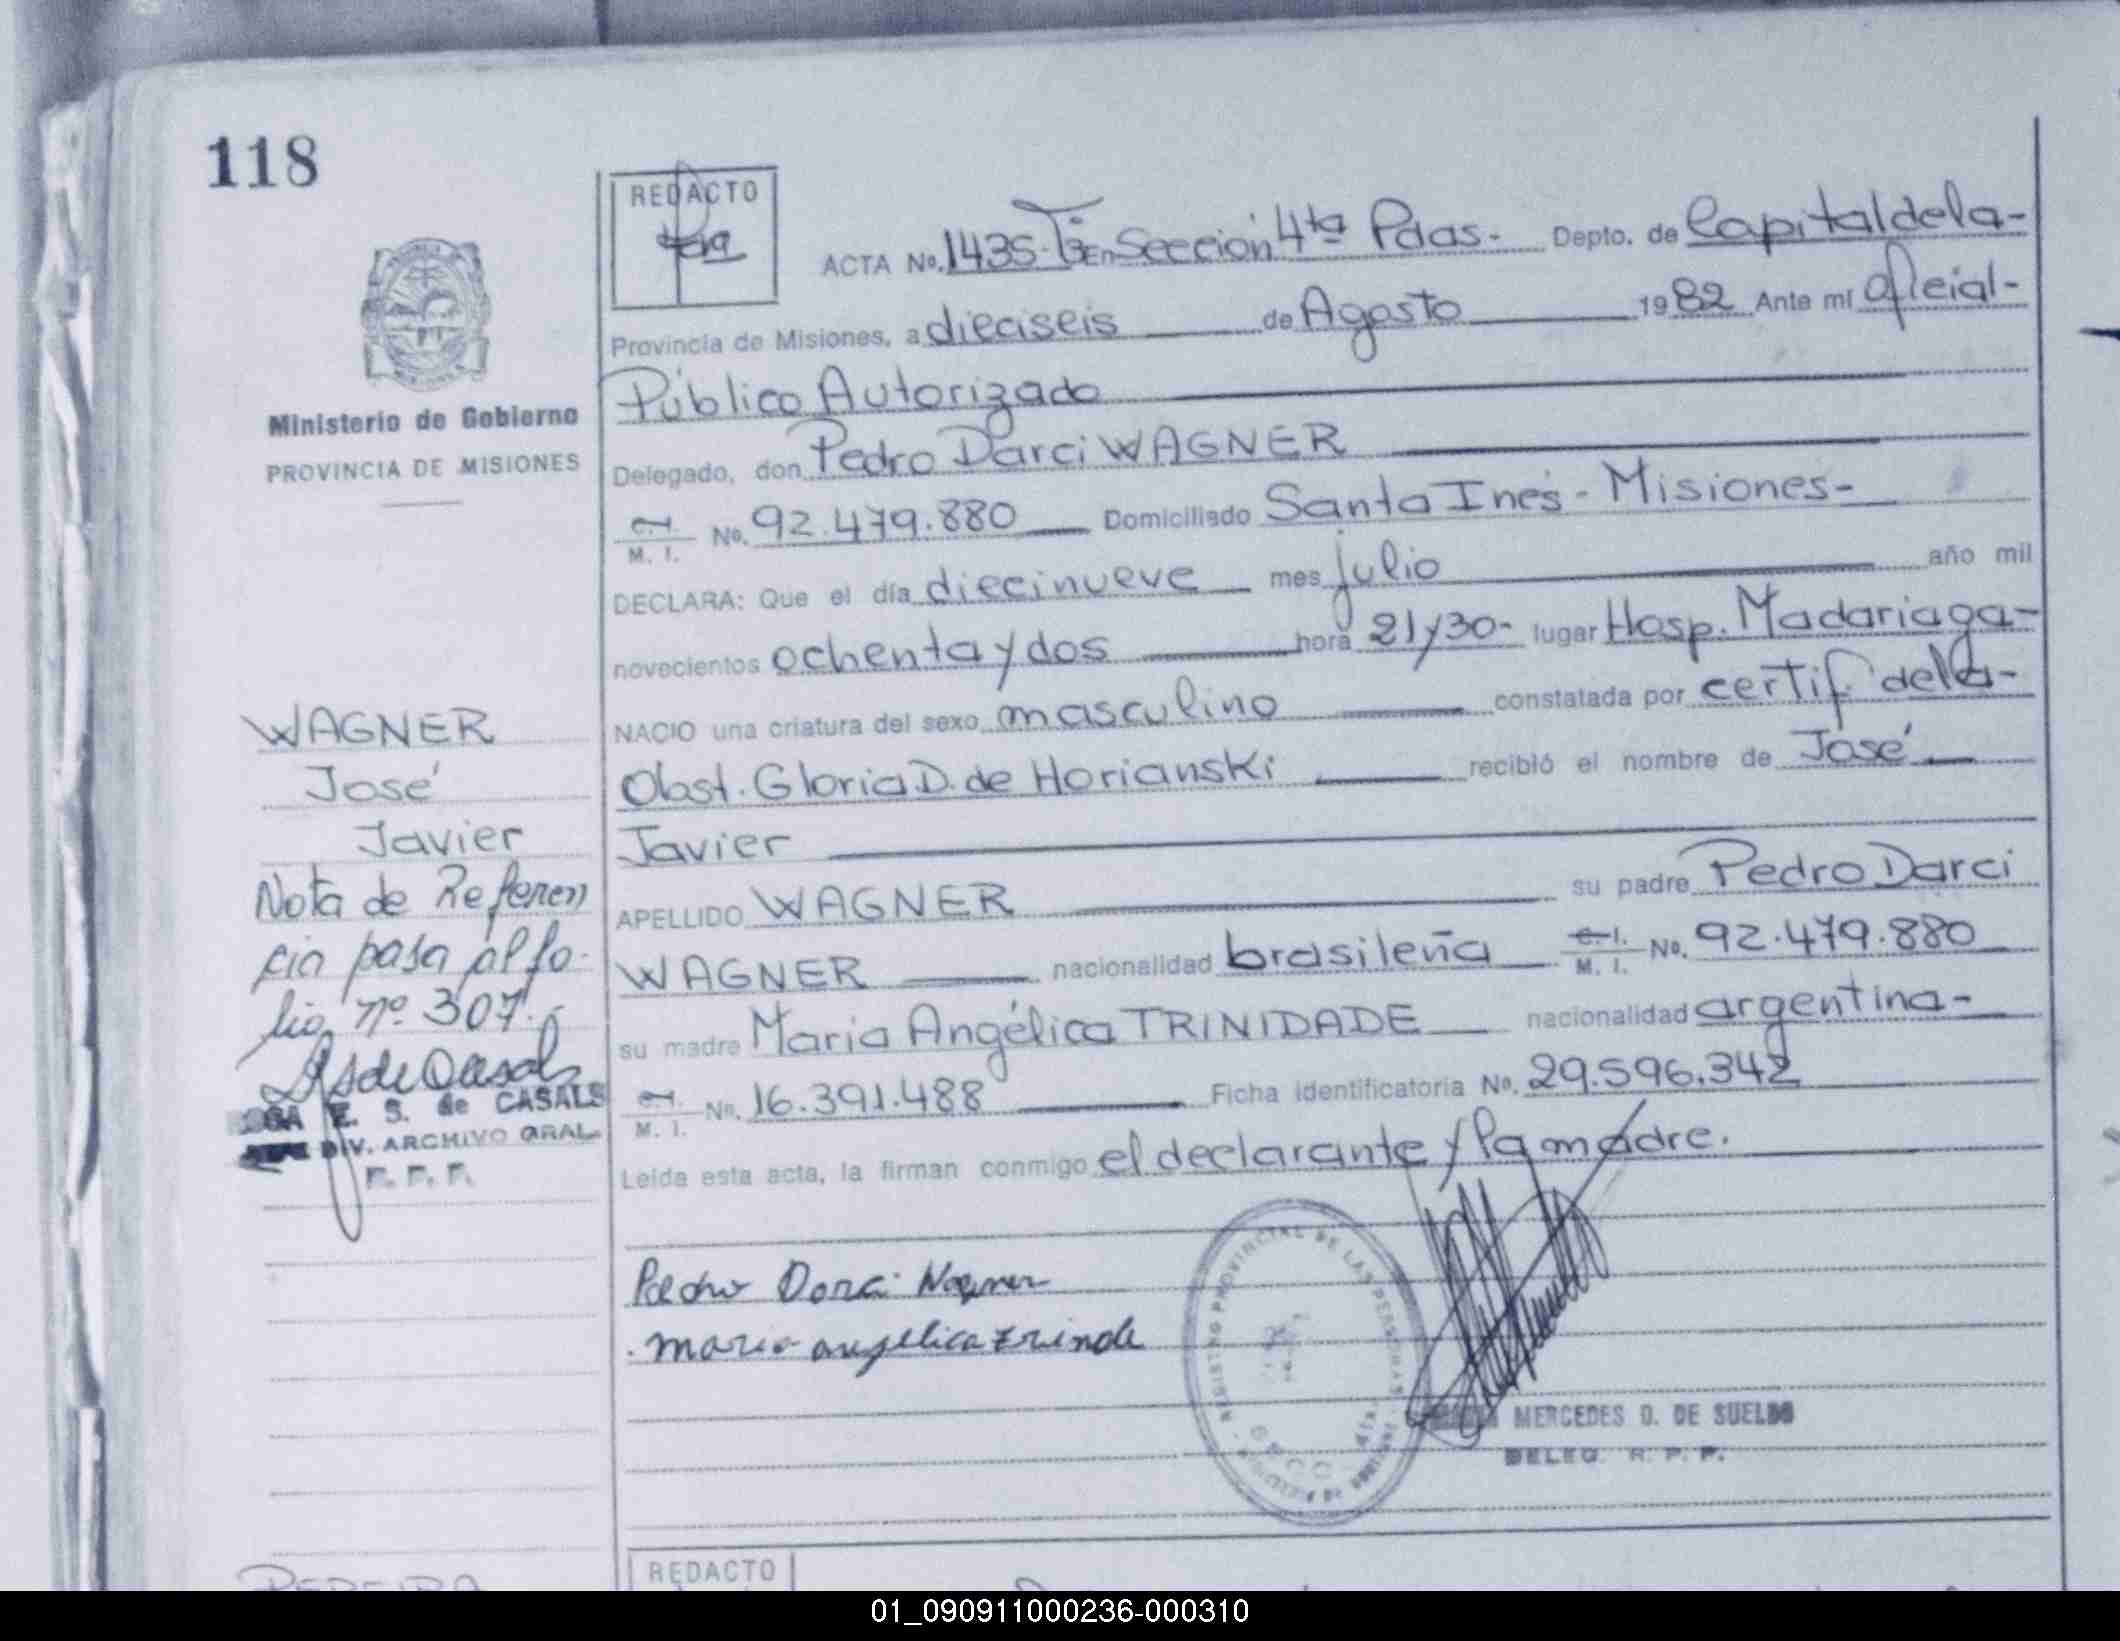 118
REDACTO
ACTA No. 1435-T3 En Sección 4ta Pdas.- Depto. de Capital de la-
Provincia de Misiones, a dieciseis de Agosto 1982 Ante mí Oficial-
Público Autorizado
Delegado, don Pedro Darci WAGNER
C.I. M. I. No. 92.479.880 Domiciliado Santa Inés - Misiones-
DECLARA: Que el día diecinueve mes julio año mil
novecientos ochenta y dos hora 21y30- lugar Hosp. Madariaga-
NACIO una criatura del sexo masculino constatada por certif. de la-
Obst. Gloria D. de Horianski recibió el nombre de José
Javier
APELLIDO WAGNER su padre Pedro Darci
WAGNER nacionalidad brasileña C.I. M. I. No. 92.479.880
su madre Maria Angélica TRINIDADE nacionalidad argentina-
C.I. M. I. No. 16.391.488 Ficha identificatoria No. 29.596.342
Leída esta acta, la firman conmigo el declarante y la madre.
Pedro Darci Wagner
maria angelica trinda
REGISTRO PROVINCIAL DE LAS PERSONAS
MERCEDES D. DE SUELDO
DELEG. R. P. P.
Ministerio de Gobierno
PROVINCIA DE MISIONES
WAGNER
José
Javier
Nota de Referen
cia pasa al fo-
lio nº 307.-
E. S. de CASALS
DIV. ARCHIVO GRAL.
R. P. P.
PEREIRA
REDACTO
01_090911000236-000310